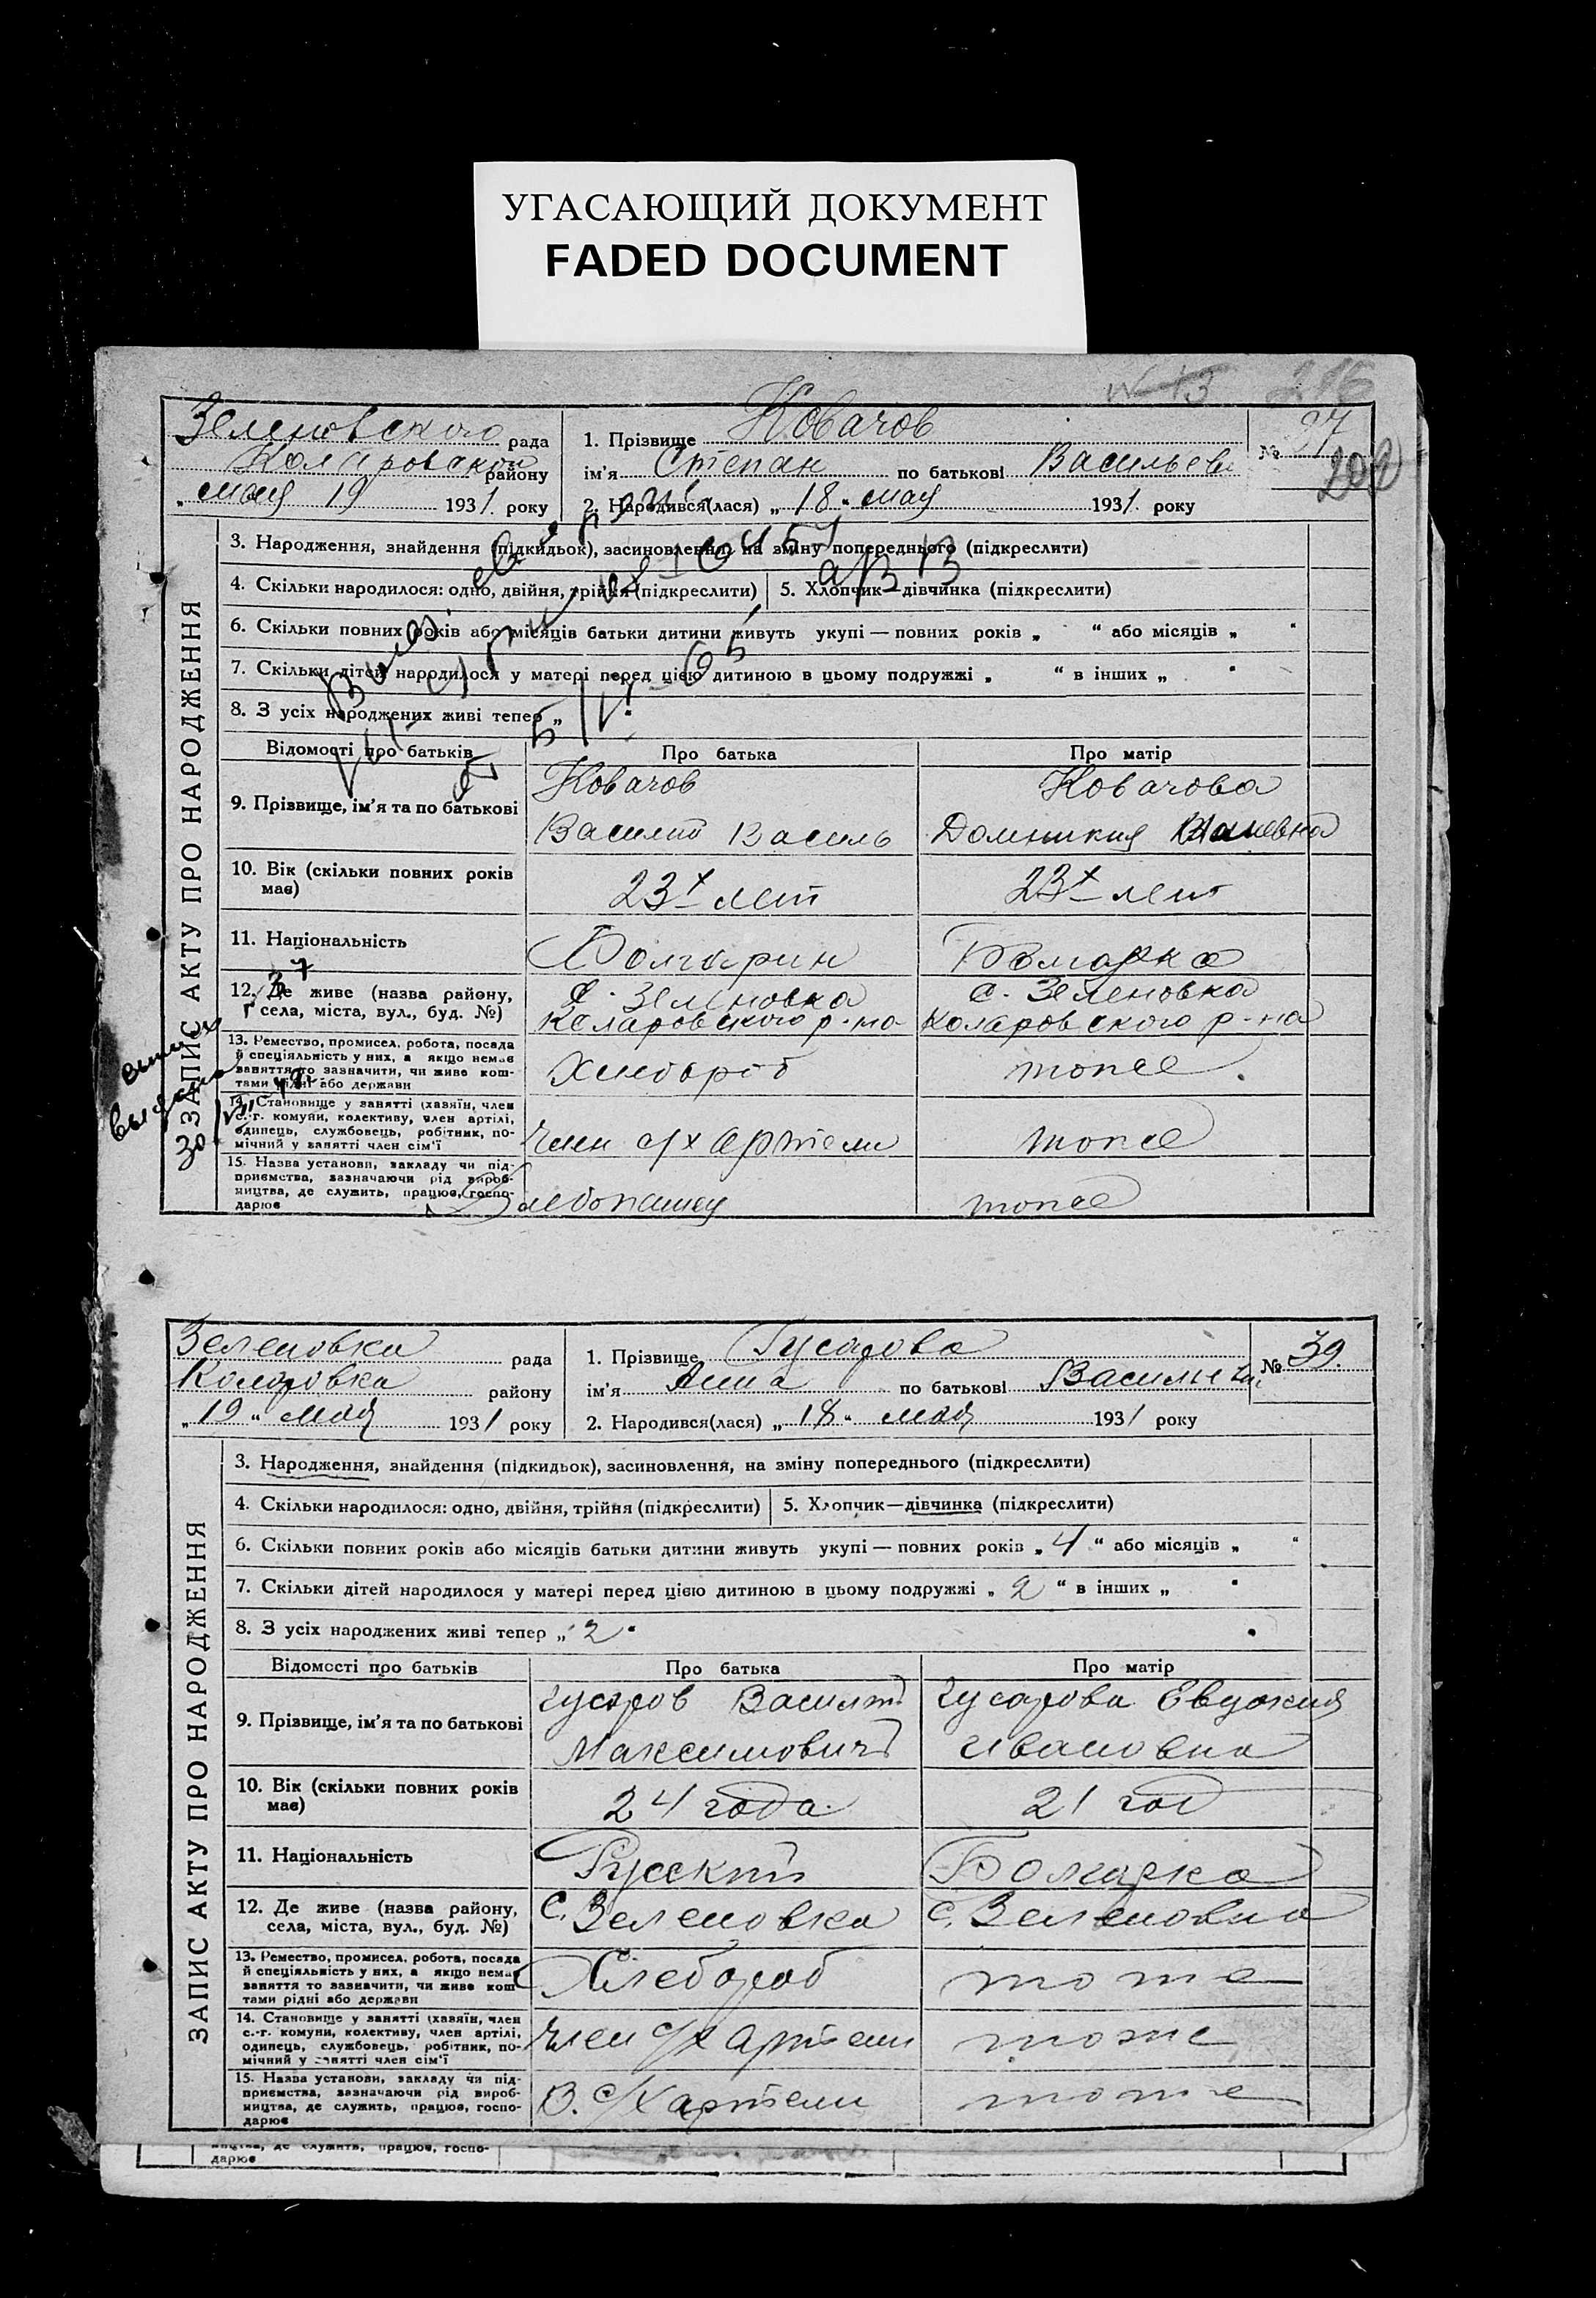 УГАСАЮЩИЙ ДОКУМЕНТ
FADED DOCUMENT
ЗАПИС АКТУ ПРО НАРОДЖЕННЯ
Зеленовского рада
Коларовский району
„ мая 19 1931 року
1. Прізвище Ковачов
ім'я Степан по батькові Васильеви
2. Народився(лася) „ 18 “ мая 1931 року
№ 37
202
216
3. Народження, знайдення (підкидьок), засиновлення, на зміну попереднього (підкреслити)
4. Скільки народилося: одно, двійня, трійня (підкреслити) 5. Хлопчик—дівчинка (підкреслити)
6. Скільки повних років або місяців батьки дитини живуть укупі — повних років „ “ або місяців „ “
7. Скільки дітей народилося у матері перед цією дитиною в цьому подружжі „ “ в інших „ “
8. З усіх народжених живі тепер „
Відомості про батьків Про батька Про матір
9. Прізвище, ім'я та по батькові
Ковачов
Василий Василь
Ковачова
Домникия
10. Вік (скільки повних років має) 23х лет 23х лет
11. Національність Болгарин Болгарка
12. Де живе (назва району, села, міста, вул., буд. №)
с. Зеленовка
Коларовского р-на
с. Зеленовка
Коларовского р-на
13. Ремество, промисел, робота, посада
й спеціяльність у них, а якщо немає
заняття то зазначити, чи живе кош-
тами рідні або держави
Хлебороб тоже
14. Становище у занятті (хазяїн, член
с.-г. комуни, колективу, член артілі,
одинець, службовець, робітник, по-
мічний у занятті член сім'ї
член с/х артели тоже
15. Назва установи, закладу чи під-
приємства, зазначаючи рід вироб-
ництва, де служить, працює, госпо-
дарює
Хлебопашец тоже
ЗАПИС АКТУ ПРО НАРОДЖЕННЯ
Зеленовка рада
Коларовка району
„ 19 “ мая 1931 року
1. Прізвище Гусарова
ім'я Анна по батькові
2. Народився(лася) „ 18 “ мая 1931 року
№ 39.
3. Народження, знайдення (підкидьок), засиновлення, на зміну попереднього (підкреслити)
4. Скільки народилося: одно, двійня, трійня (підкреслити) 5. Хлопчик—дівчинка (підкреслити)
6. Скільки повних років або місяців батьки дитини живуть укупі — повних років „ 4 “ або місяців „ “
7. Скільки дітей народилося у матері перед цією дитиною в цьому подружжі „ 2 “ в інших „ “
8. З усіх народжених живі тепер „ 2 “
Відомості про батьків Про батька Про матір
9. Прізвище, ім'я та по батькові
Гусаров Василий
Максимович
Гусарова Евдокия
Ивановна
10. Вік (скільки повних років має) 24 года 21 год
11. Національність Русский Болгарка
12. Де живе (назва району, села, міста, вул., буд. №)
с. Зеленовка с. Зеленовка
13. Ремество, промисел, робота, посада
й спеціяльність у них, а якщо немає
заняття то зазначити, чи живе кош-
тами рідні або держави
Хлебороб тоже
14. Становище у занятті (хазяїн, член
с.-г. комуни, колективу, член артілі,
одинець, службовець, робітник, по-
мічний у занятті член сім'ї
член с/х артели тоже
15. Назва установи, закладу чи під-
приємства, зазначаючи рід вироб-
ництва, де служить, працює, госпо-
дарює
В. с/х артели тоже
ництва, де служить, працює, госпо-
дарює